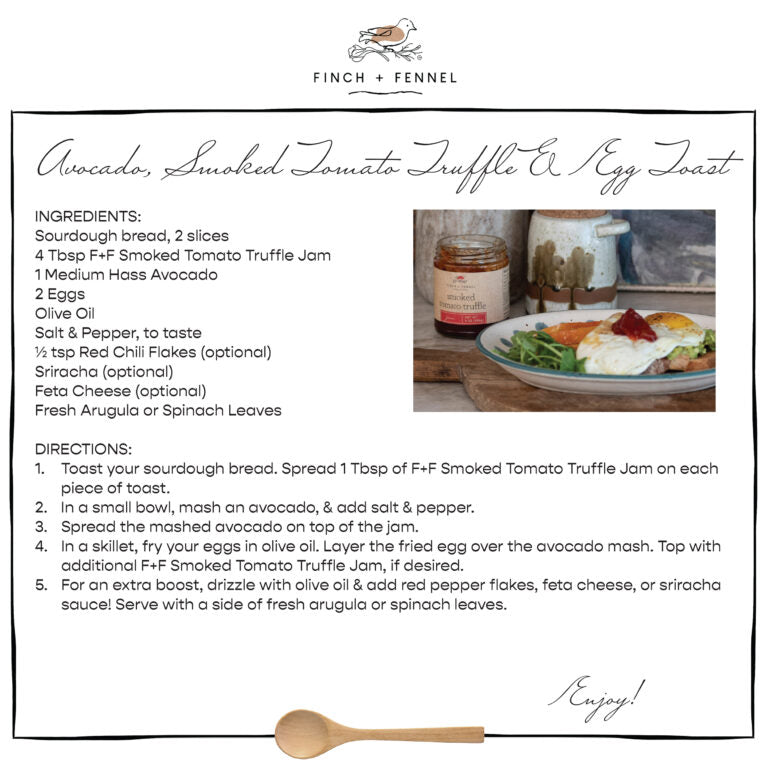 FINCH + FENNEL
Avocado, Smoked Tomato Truffle & Egg Toast
INGREDIENTS:
Sourdough bread, 2 slices
4 Tbsp F+F Smoked Tomato Truffle Jam
1 Medium Hass Avocado
2 Eggs
Olive Oil
Salt & Pepper, to taste
½ tsp Red Chili Flakes (optional)
Sriracha (optional)
Feta Cheese (optional)
Fresh Arugula or Spinach Leaves
FINCH + FENNEL
smoked
tomato truffle
DIRECTIONS:
1. Toast your sourdough bread. Spread 1 Tbsp of F+F Smoked Tomato Truffle Jam on each
piece of toast.
2. In a small bowl, mash an avocado, & add salt & pepper.
3. Spread the mashed avocado on top of the jam.
4. In a skillet, fry your eggs in olive oil. Layer the fried egg over the avocado mash. Top with
additional F+F Smoked Tomato Truffle Jam, if desired.
5. For an extra boost, drizzle with olive oil & add red pepper flakes, feta cheese, or sriracha
sauce! Serve with a side of fresh arugula or spinach leaves.
Enjoy!